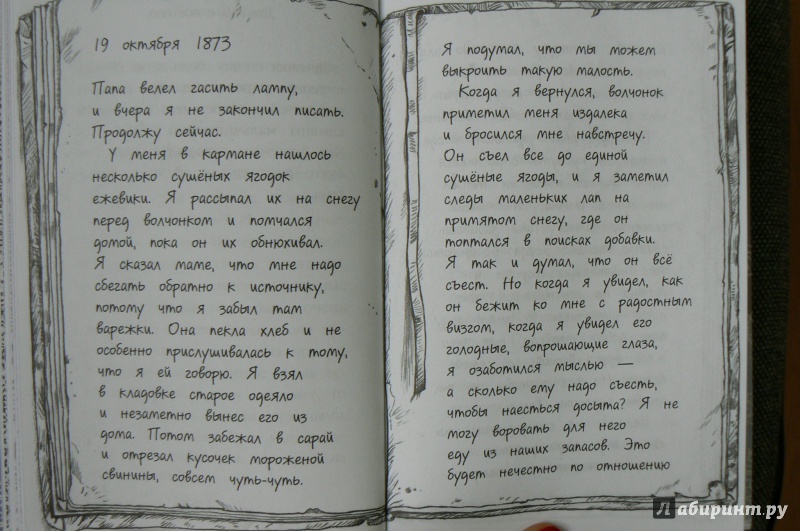 19 октября 1873
Папа велел гасить лампу,
и вчера я не закончил писать.
Продолжу сейчас.
У меня в кармане нашлось
несколько сушёных ягодок
ежевики. Я рассыпал их на снегу
перед волчонком и помчался
домой, пока он их обнюхивал.
Я сказал маме, что мне надо
сбегать обратно к источнику,
потому что я забыл там
варежки. Она пекла хлеб и не
особенно прислушивалась к тому,
что я ей говорю. Я взял
в кладовке старое одеяло
и незаметно вынес его из
дома. Потом забежал в сарай
и отрезал кусочек мороженой
свинины, совсем чуть-чуть.
Я подумал, что мы можем
выкроить такую малость.
Когда я вернулся, волчонок
приметил меня издалека
и бросился мне навстречу.
Он съел все до единой
сушёные ягоды, и я заметил
следы маленьких лап на
примятом снегу, где он
топтался в поисках добавки.
Я так и думал, что он всё
съест. Но когда я увидел, как
он бежит ко мне с радостным
визгом, когда я увидел его
голодные, вопрошающие глаза,
я озаботился мыслью —
а сколько ему надо съесть,
чтобы наесться досыта? Я не
могу воровать для него
еду из наших запасов. Это
будет нечестно по отношению
Лабиринт.ру